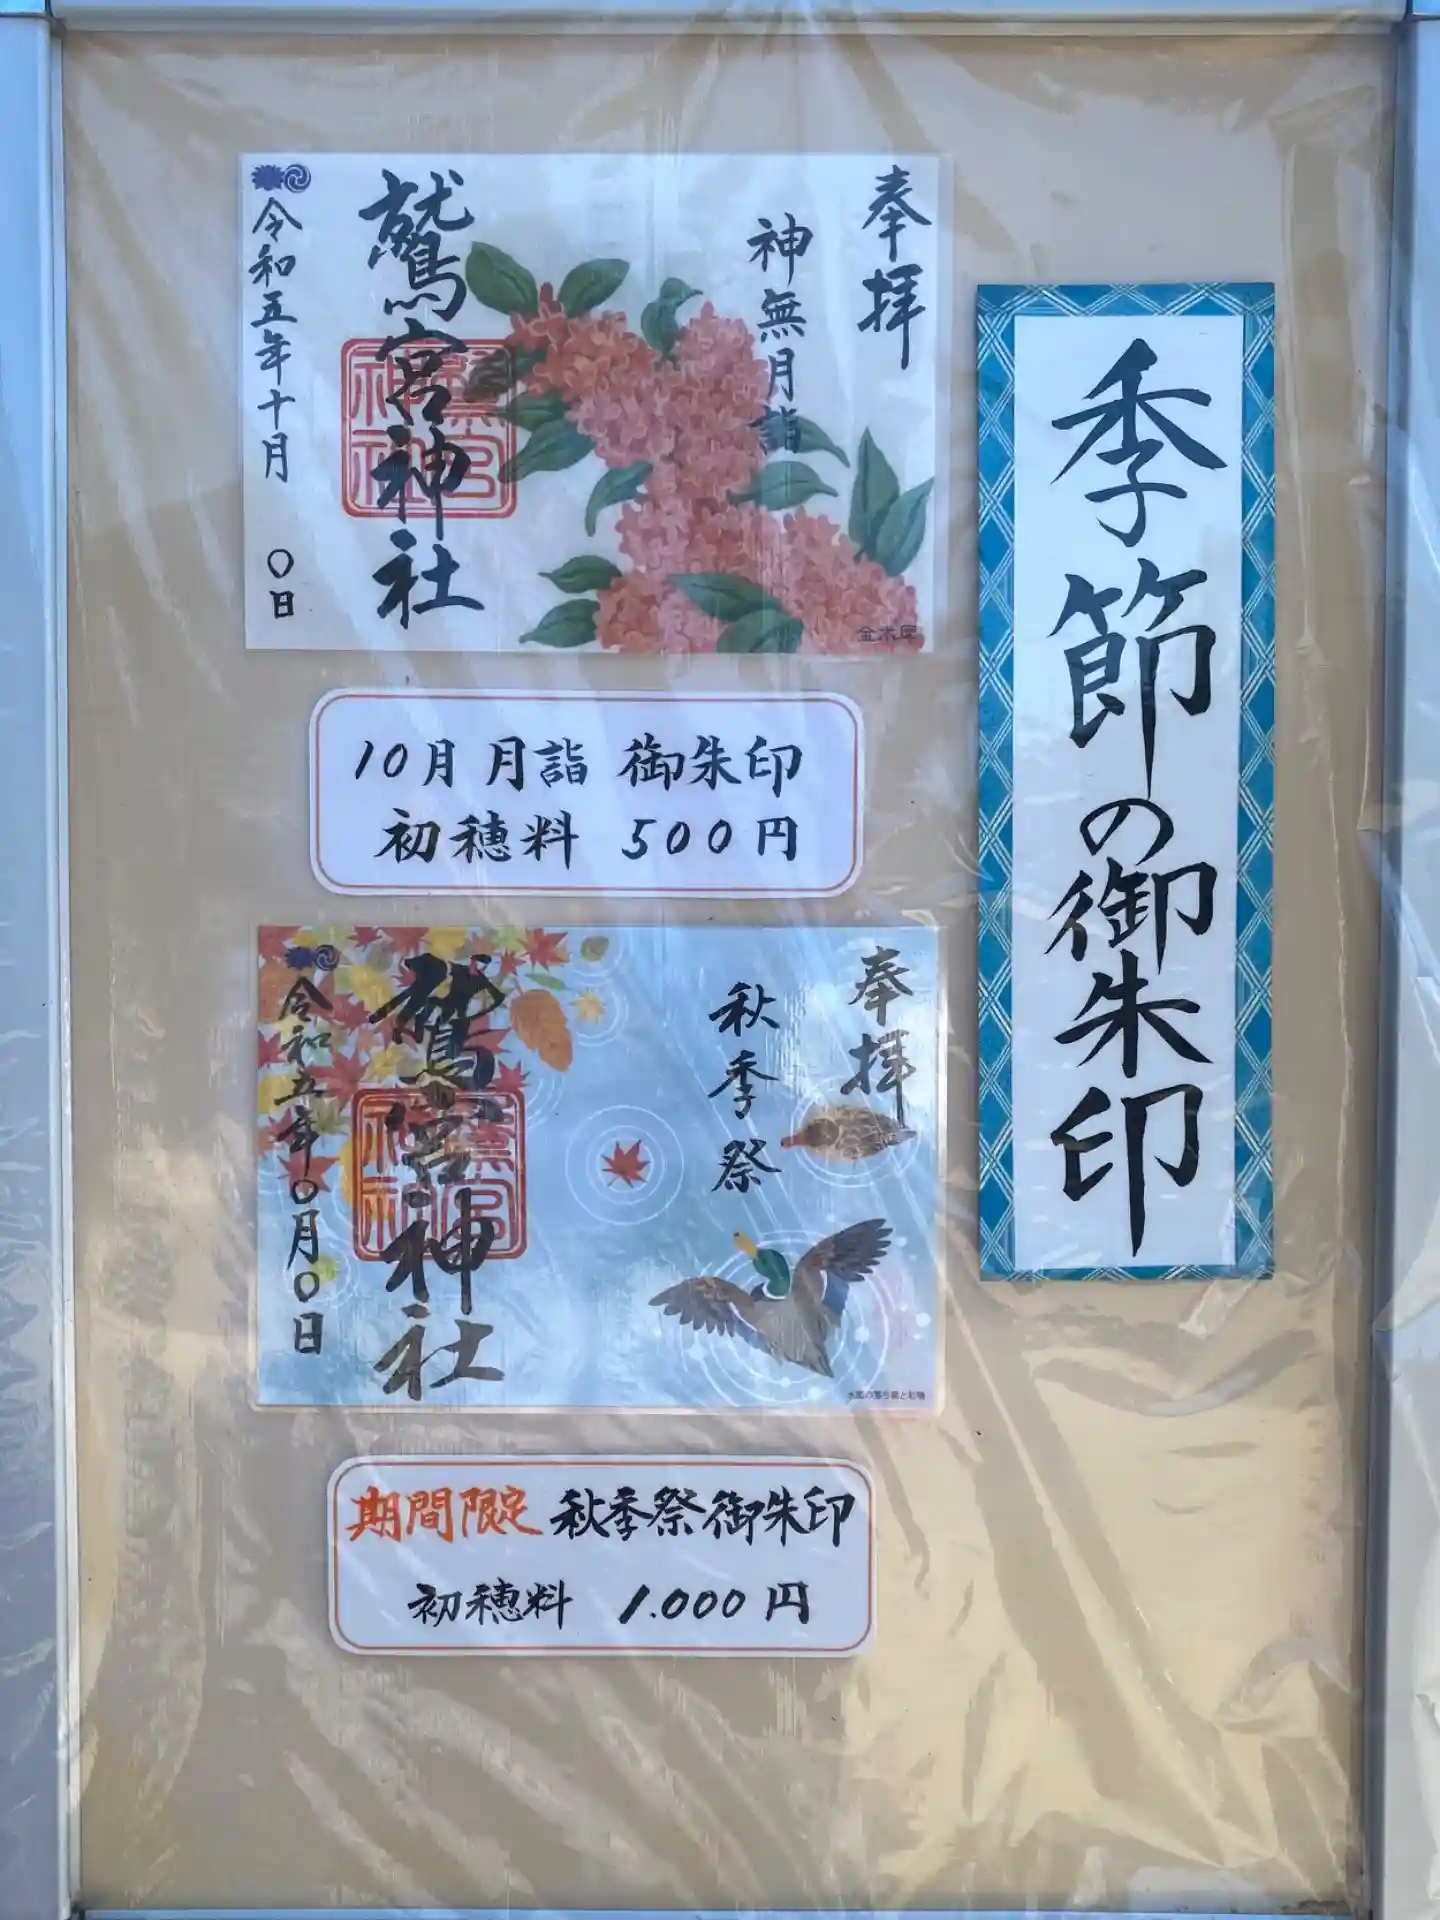 季節の御朱印
奉拝
神無月詣
鷲宮神社
令和五年十月 〇日
金木犀
10月 月詣 御朱印
初穂料 500円
奉拝
秋季祭
鷲宮神社
令和五年〇月〇日
期間限定 秋季祭御朱印
初穂料 1.000円